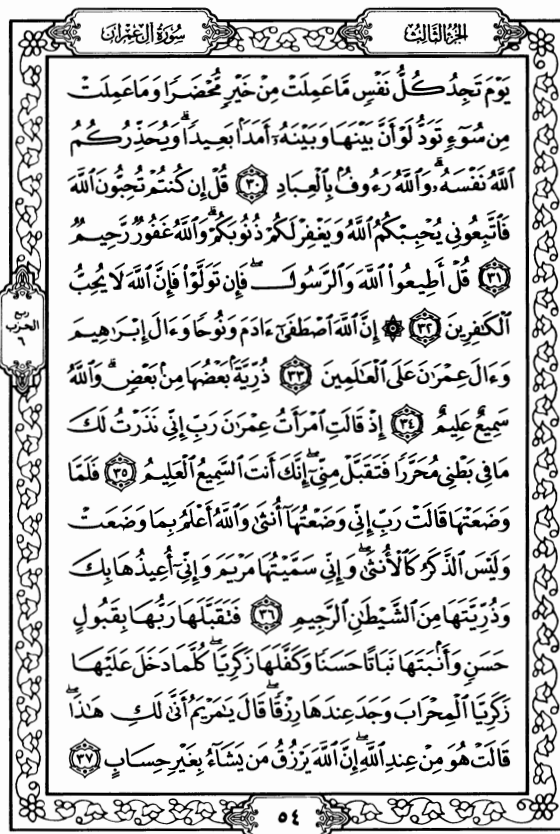 سُورَةُ آلِ عِمْرَانَ
الجُزْءُ الثَّالِثُ
يَوْمَ تَجِدُ كُلُّ نَفْسٍ مَّا عَمِلَتْ مِنْ خَيْرٍ مُّحْضَرًا وَمَا عَمِلَتْ
مِن سُوٓءٍ تَوَدُّ لَوْ أَنَّ بَيْنَهَا وَبَيْنَهُۥٓ أَمَدًۢا بَعِيدًا ۗ وَيُحَذِّرُكُمُ
ٱللَّهُ نَفْسَهُۥ ۗ وَٱللَّهُ رَءُوفٌۢ بِٱلْعِبَادِ ٣٠ قُلْ إِن كُنتُمْ تُحِبُّونَ ٱللَّهَ
فَٱتَّبِعُونِى يُحْبِبْكُمُ ٱللَّهُ وَيَغْفِرْ لَكُمْ ذُنُوبَكُمْ ۗ وَٱللَّهُ غَفُورٌ رَّحِيمٌ
٣١ قُلْ أَطِيعُوا۟ ٱللَّهَ وَٱلرَّسُولَ ۖ فَإِن تَوَلَّوْا۟ فَإِنَّ ٱللَّهَ لَا يُحِبُّ
ٱلْكَٰفِرِينَ ٣٢ ۞ إِنَّ ٱللَّهَ ٱصْطَفَىٰٓ ءَادَمَ وَنُوحًا وَءَالَ إِبْرَٰهِيمَ
وَءَالَ عِمْرَٰنَ عَلَى ٱلْعَٰلَمِينَ ٣٣ ذُرِّيَّةًۢ بَعْضُهَا مِنۢ بَعْضٍ ۗ وَٱللَّهُ
سَمِيعٌ عَلِيمٌ ٣٤ إِذْ قَالَتِ ٱمْرَأَتُ عِمْرَٰنَ رَبِّ إِنِّى نَذَرْتُ لَكَ
مَا فِى بَطْنِى مُحَرَّرًا فَتَقَبَّلْ مِنِّىٓ ۖ إِنَّكَ أَنتَ ٱلسَّمِيعُ ٱلْعَلِيمُ ٣٥ فَلَمَّا
وَضَعَتْهَا قَالَتْ رَبِّ إِنِّى وَضَعْتُهَآ أُنثَىٰ وَٱللَّهُ أَعْلَمُ بِمَا وَضَعَتْ
وَلَيْسَ ٱلذَّكَرُ كَٱلْأُنثَىٰ ۖ وَإِنِّى سَمَّيْتُهَا مَرْيَمَ وَإِنِّىٓ أُعِيذُهَا بِكَ
وَذُرِّيَّتَهَا مِنَ ٱلشَّيْطَٰنِ ٱلرَّجِيمِ ٣٦ فَتَقَبَّلَهَا رَبُّهَا بِقَبُولٍ
حَسَنٍ وَأَنۢبَتَهَا نَبَاتًا حَسَنًا وَكَفَّلَهَا زَكَرِيَّا ۖ كُلَّمَا دَخَلَ عَلَيْهَا
زَكَرِيَّا ٱلْمِحْرَابَ وَجَدَ عِندَهَا رِزْقًا ۖ قَالَ يَٰمَرْيَمُ أَنَّىٰ لَكِ هَٰذَا ۖ
قَالَتْ هُوَ مِنْ عِندِ ٱللَّهِ ۖ إِنَّ ٱللَّهَ يَرْزُقُ مَن يَشَآءُ بِغَيْرِ حِسَابٍ ٣٧
ربع
الحزب
٦
٥٤